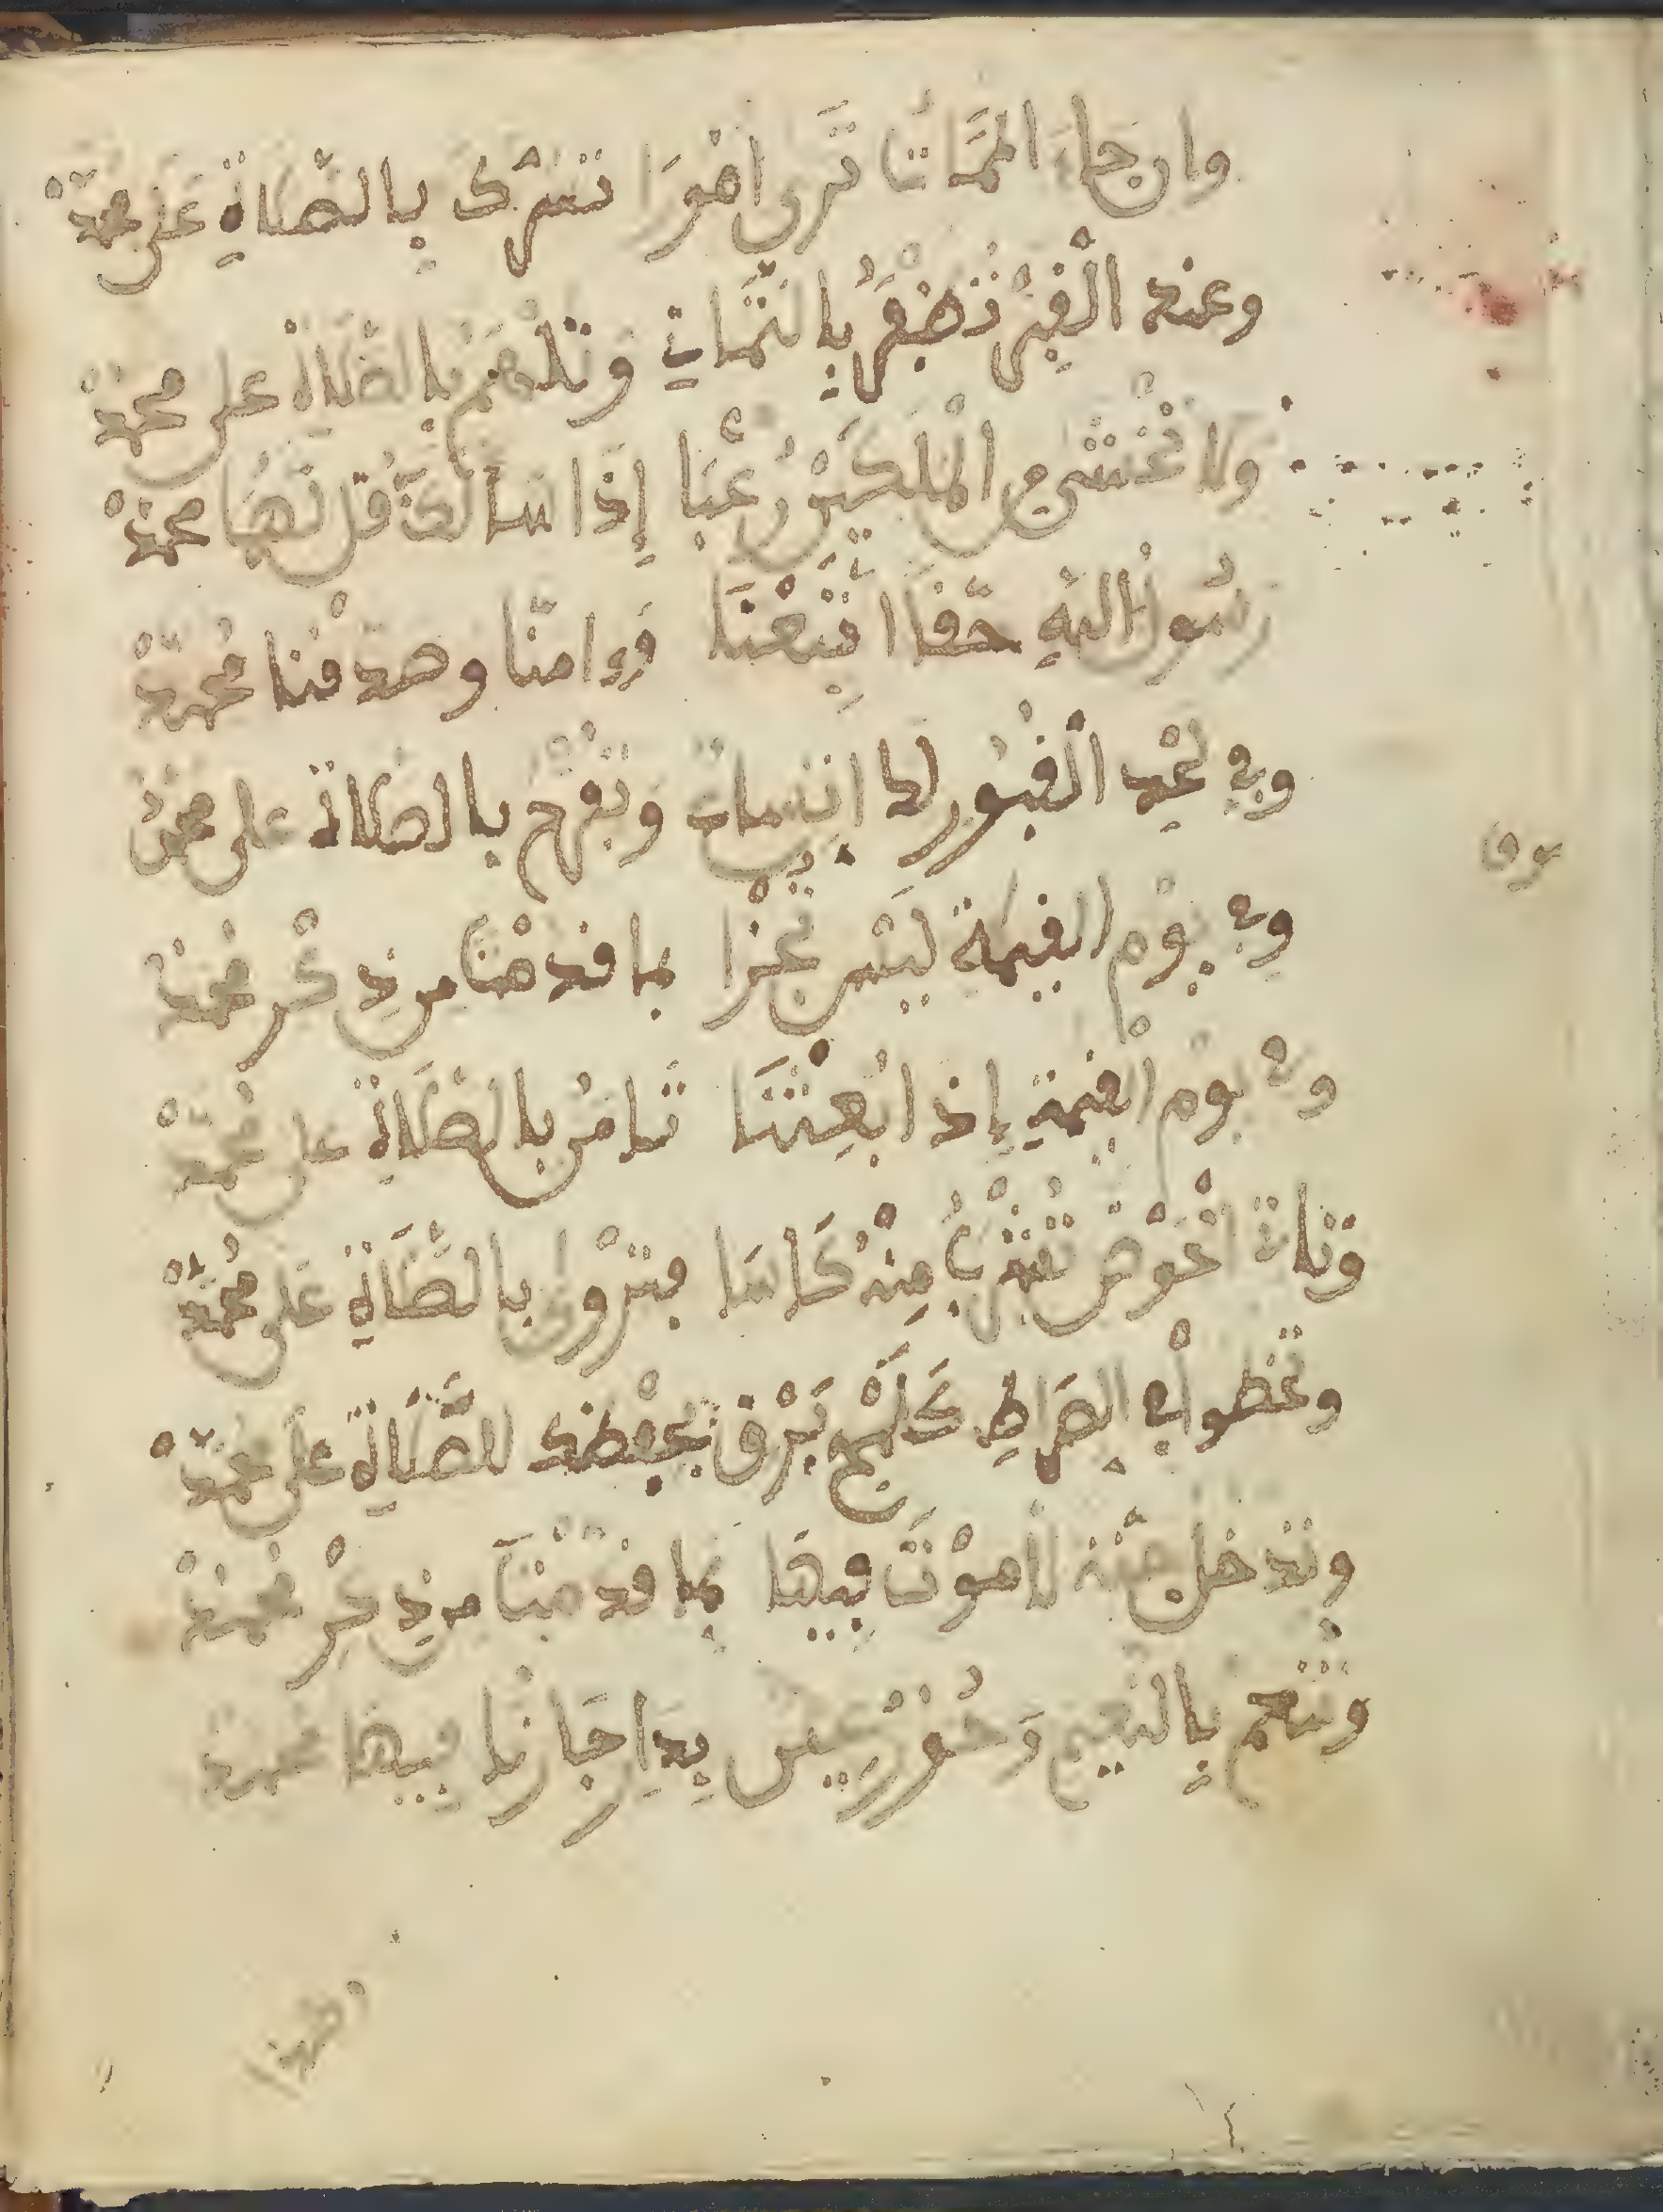 وان جاء المَمَاتُ تَرى اُمُورَا تسرّك بالصَّلاةِ عَلَى محمّدْ
وعند الْقَبْرِ تَظْفَرُ بِالثَّبَاتِ وَتُلْهَمُ بالصَّلاةِ على محمدْ
ولا تخْشى من الْمَلَكَيْنِ رُعْبًا إِذَا سَأَلَكَ قل لَهُمَا محمدْ
رَسُولُ اللهِ حَقًّا اتَّبَعْنَا وءَامنَّا وصدقْنا مُحمّدْ
وفي لَحْدِ الْقُبُورِ لَهُ انِيسات وَتَفْرَح بالصلاة على محمدْ
وفي يوْم القيمة ليْسَ تُجْزَا بما قدمْتَ من ذِكْر مُحمدْ
وفي يوْم القيمة إذا بُعِثْتَا تَامَنُ بالصَّلَاةِ على مُحمَّدْ
وَتاتِ الْحَوْضَ تَشْرَبُ مِنْهُ كَاسَا فتَرْوى بالصَّلَاةِ عَلى مُحمّدْ
وتخطوا في الصِّرَاطِ كَلَمْحِ بَرْقٍ بحفظك للصَّلَاةِ على محمّدْ
وتدخل جنّة لا مَوْتَ فِيهَا بما قدمْتَ من ذِكْرِ مُحمدْ
وتنعم بِالنعيم وَحُورِ عين بِدَارٍ جَارُنا فيها مُحمدْ